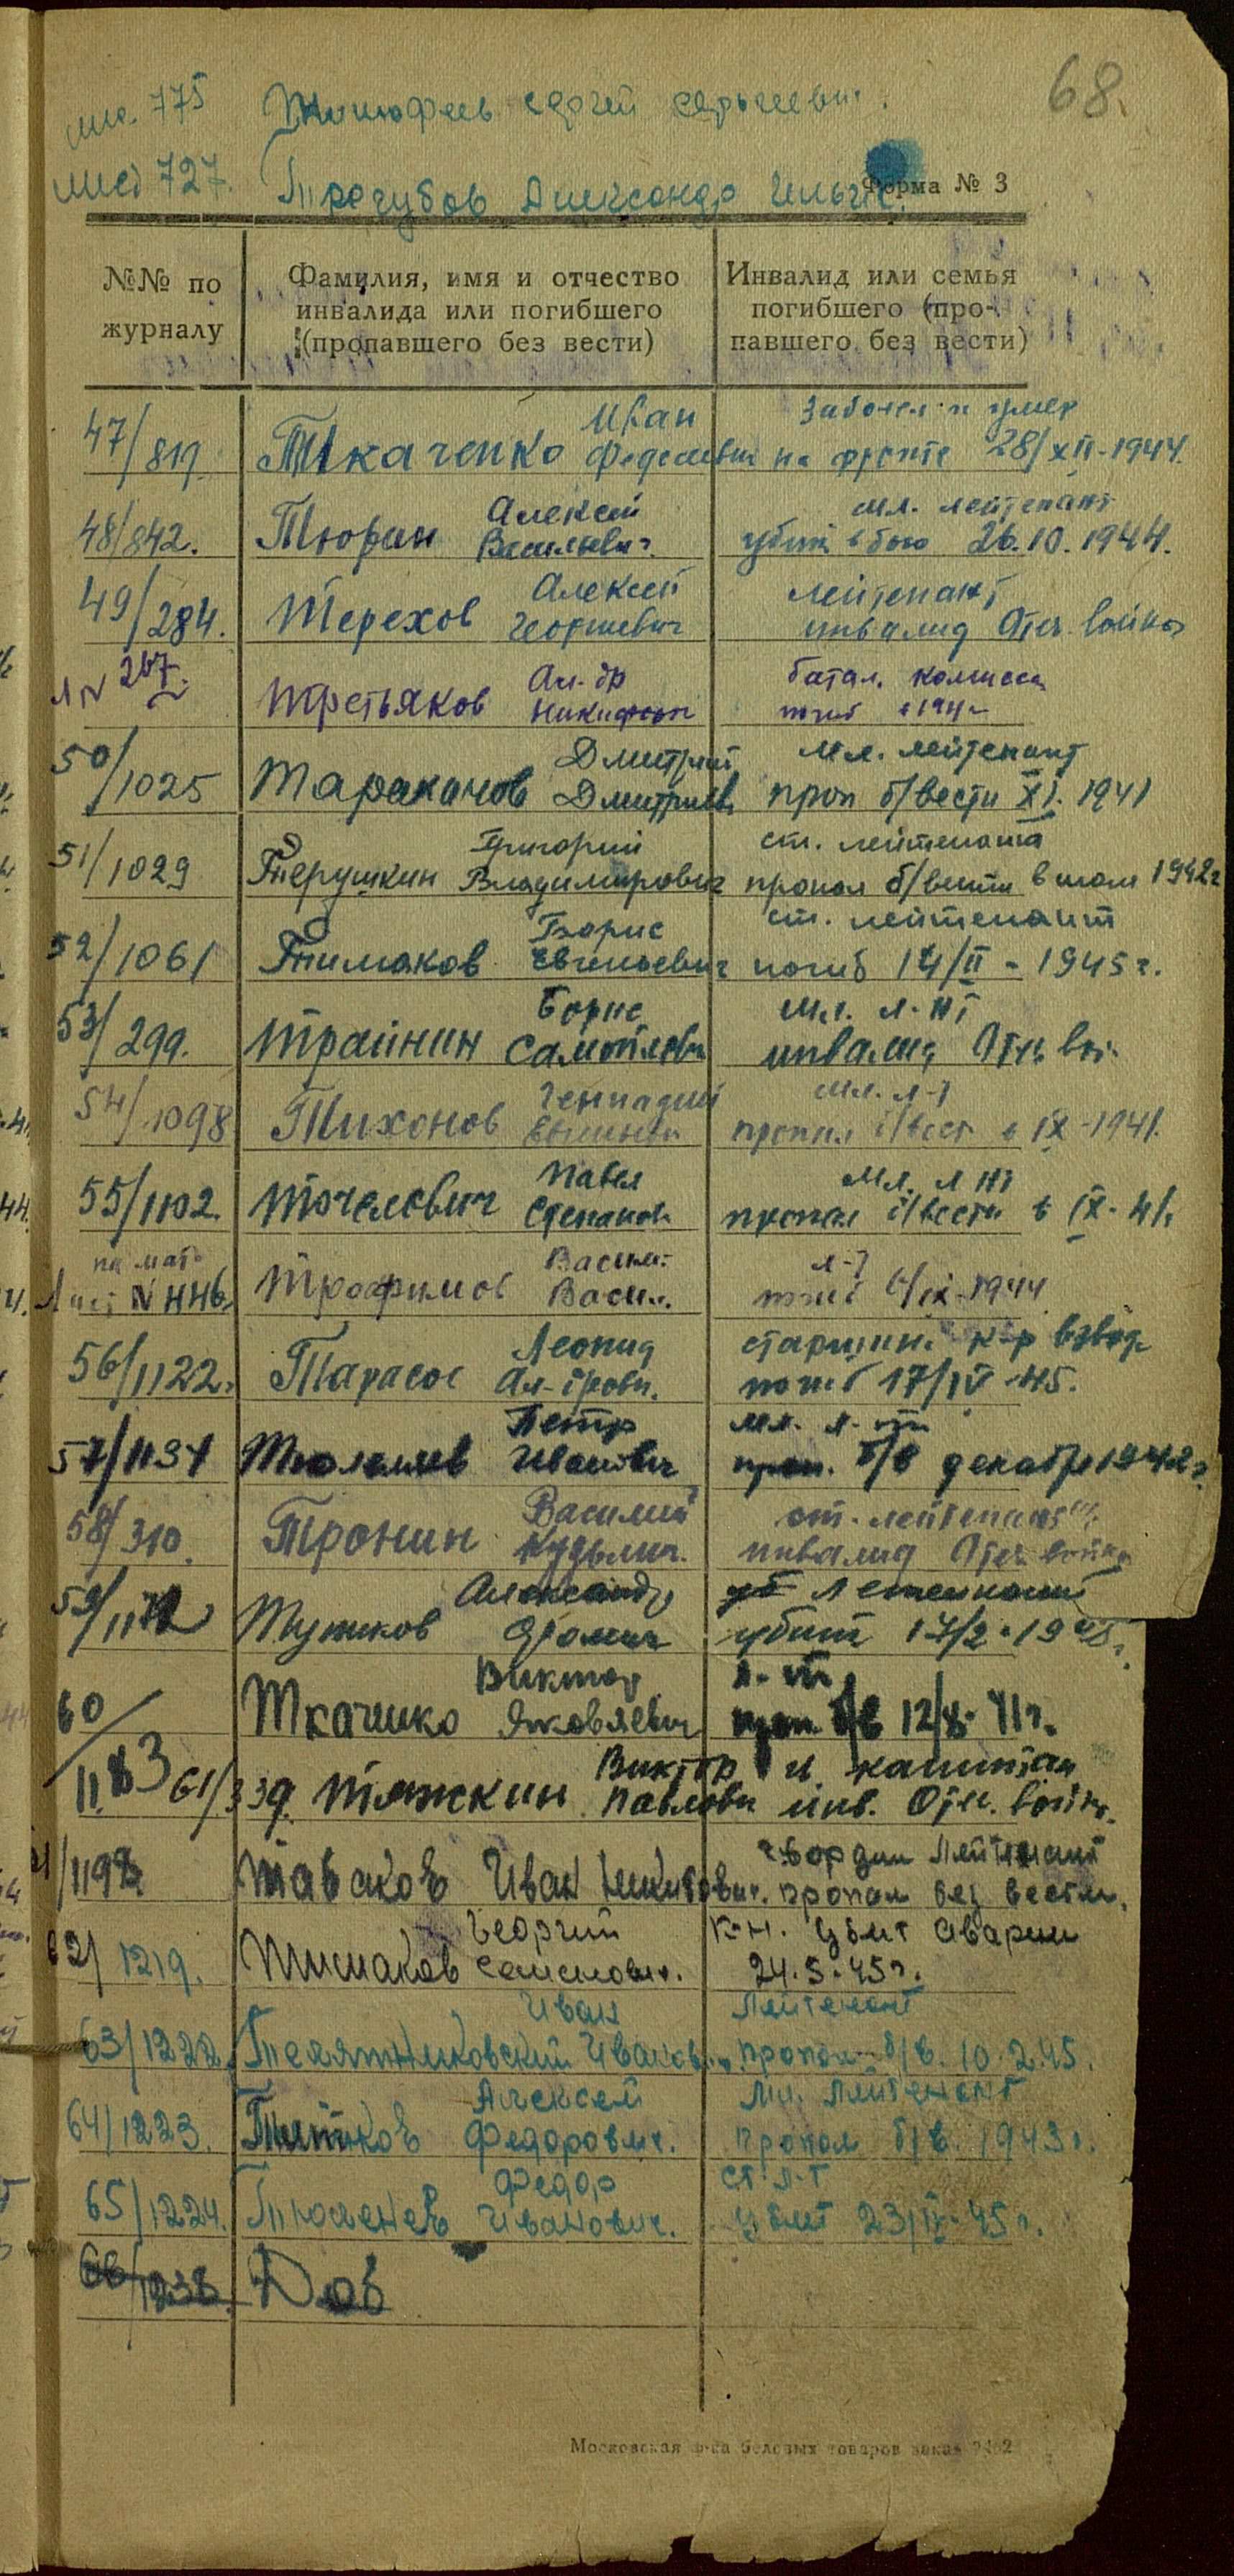 68.
775 Тимофеев Сергей Сергеевич.
лист 727. Трегубов Александр Ильич.
Форма № 3
№№ по журналу
Фамилия, имя и отчество инвалида или погибшего (пропавшего без вести)
Инвалид или семья погибшего (пропавшего без вести)
Иван Заболел и умер
47/819. Ткаченко на фронте 28/XII-1944.
Алексей мл. лейтенант
48/842. Тюрин Васильевич убит в бою 26.10.1944.
Алексей лейтенант
49/284. Терехов Георгиевич инвалид Отеч. войны
267. Ал-др батал. комисса
Третьяков
Дмитрий мл. лейтенант
50/1025 Тараканов Дмитриев проп б/вести XI. 1941
Григорий ст. лейтенант
51/1029 Терушкин Владимирович пропал б/вести в 1942г
Борис ст. лейтенант
52/1061 Тимаков Евгеньевич погиб 14/II - 1945г.
Борис мл. л-нт
53/299. Трайнин Самойлови инвалид
Геннадий мл. л-т
54/1098 Тихонов пропал б/вест в IX-1941.
Павел мл. л-нт
55/1102. Точелович Степанов. пропал б/вести в IX-41.
Васил. л-т
Лист N 446. Трофимов Васил. погиб 6/IX-1944
Леонид старшина к-р взвод
56/1122. Тарасов Ал-дрови. погиб 17/IV-45.
Петр мл. л-т
57/1131 Иванович проп. б/в декабр 1942г.
Василий ст. лейтенант
58/310. Тронин Кузьмич. инвалид Отеч войны
Александр уб лейтенант
59/1172 Тутиков убит 17/2-1945г.
Виктор л-т
60/1183 Ткаченко Яковлевич проп. б/в 12/8-41г.
Виктор капитан
61/339. Тяжкин Павлови инв. Отеч. войны.
гвардии Лейтенант
/1198 Таваков Иван Никитович. пропал без вести.
Георгий к-н. убит Аварии
62/1219. Тишаков Семенович. 24.5.45г.
Иван Лейтенант
63/1222. Иванович. пропал б/в. 10.2.45.
Алексей мл. Лейтенант
64/1223. Титков Федорович. пропал б/в. 1943г.
Федор ст. л-т
65/1224. Тюленев Иванович. убит 23/IV-45г.
66/1238. Дов
Московская ф-ка беловых товаров заказ